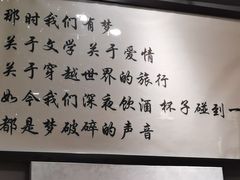 那时我们有梦
关于文学 关于爱情
关于穿越世界的旅行
如今我们深夜饮酒 杯子碰到一
都是梦破碎的声音